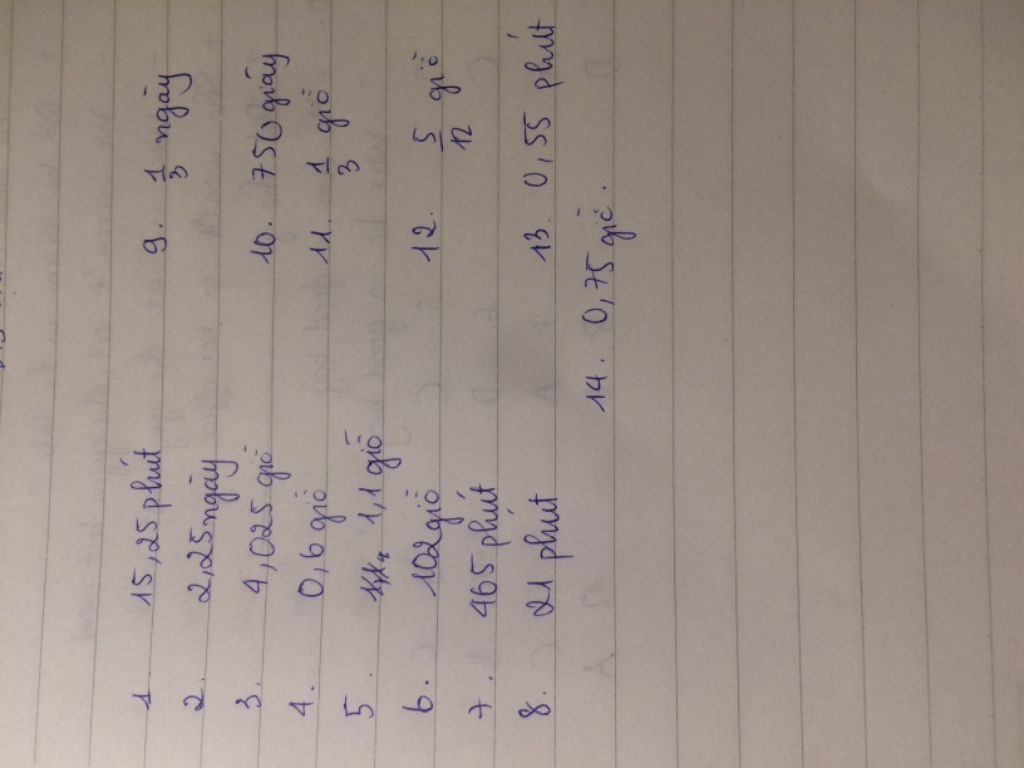 1. 15,25 phút
2. 2,25 ngày
3. 4,025 giờ
4. 0,6 giờ
5. 1,1 giờ
6. 102 giờ
7. 465 phút
8. 21 phút
9. 1/3 ngày
10. 750 giây
11. 1/3 giờ
12. 5/12 giờ
13. 0,55 phút
14. 0,75 giờ.